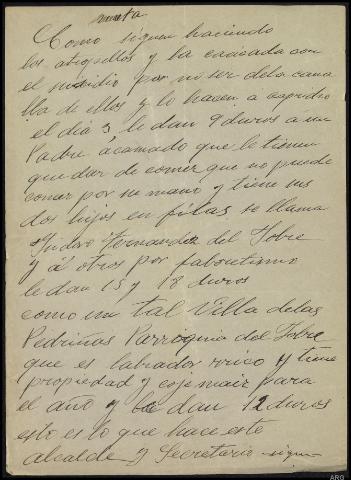 nueta
Como siguen haciendo
los atropellos y la cacicada con
el subsidio por no ser dela cana
lla de ellos y lo hacen a capricho
el dia 3 le dan 9 duros a un
Padre acamado que le tienen
que dar de comer que no puede
comer por su mano y tiene sus
dos hijos en filas, se llama
Isidero Fernandez del Tobre
y á otros por faboretismo
le dan 15 y 18 duros
como un tal Villa delas
Pedriñas Parroquia del Tobre
que es labrador rrico y tiene
propiedad y coje maiz para
el año y le dan 12 duros
esto es lo que hace este
alcalde y Secretario sigue
ARG